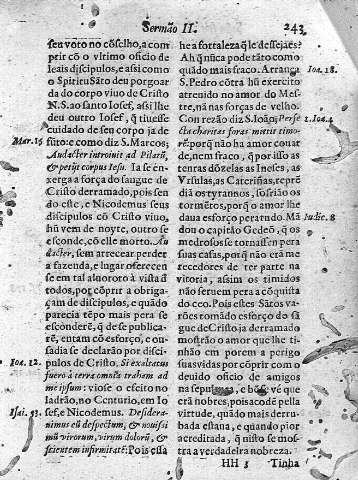 Sermão II. 243
seu voto no cõselho, a com
prir cõ o vltimo oficio de
leais discipulos, e assi como
o Spiritu Sãto deu por goar
da do corpo viuo de Christo
N. S. ao santo Iosef, assi lhe
deu outro Iosef, q̃ tiuesse
cuidado de seu corpo ja de
Mar. 15 fũto: e como diz S. Marcos;
Audacter introiuit ad Pilatũ,
& petijt corpus Iesu. Ia se en
xerga a força do sangue de
Cristo derramado, pois sen
do este, e Nicodemus seus
discipulos cõ Cristo viuo,
hũ vem de noyte, outro se
esconde, cõ elle morto. Au
dacter, sem arrecear perder
a fazenda, e lugar oferecen
se em tal aluoroto à vista d̃
todos, por cõprir a obriga
çam de discipulos, e quãdo
parecia tẽpo mais pera se
esconderẽ, q̃ de se publica-
rẽ, entam cõ esforço, e ou-
sadia se declarão por disci-
Ioa. 12. pulos de Cristo. Si exaltatus
fuero à terra omnia traham ad
me ipsum: viose o efeito no
ladrão, no Centurio, em Io
Isai. 53. sef, e Nicodemus. Desidera-
nimus eũ despectum, & nouissi
mũ virorum, virum dolorũ, &
scientem infirmitatẽ. Pois essa
he a fortaleza q̃ le dessejaes?
Ah q̃ nũca pode tãto como
quãdo mais fraco. Arranca Ioa. 18.
S. Pedro cõtra hũ exercito
atreuido no amor do Mes-
tre, nã nas forças de velho.
Con rezão diz S. Ioão; Perfe 1. Ioa. 4
cta charitas foras mittit timo-
rẽ: porq̃ não ha amor couar
de, nem fraco, q̃ por isso as
tenras dõzelas as Ineses, as
Vrsulas, as Caterinas, reprẽ
diã os tyrannos, sofrião os
tormẽtos, porq̃ o amor lhe
daua esforço pera tudo. Mã Iudic. 8
dou o capitão Gedeõ, q̃ os
medrosos se tornassen pera
suas casas, porq̃ não erã me
recedores de ter parte na
vitoria, assim os timidos
não seruem pera a cõquista
do ceo. Pois estes Sãtos va-
rões tomãdo esforço do sã
gue de Cristo ja derramado
mostrão o amor que lhe ti-
nhão em porem a perigo
suas vidas por cõprir com o
deuido oficio de amigos
na sepultura, e
crã nobres, pois acodẽ pella
virtude, quãdo mais derru-
bada estaua, e quando pior
acreditada, q̃ nisto se mos-
tra a verdadeira nobreza.
HH 3 Tinha